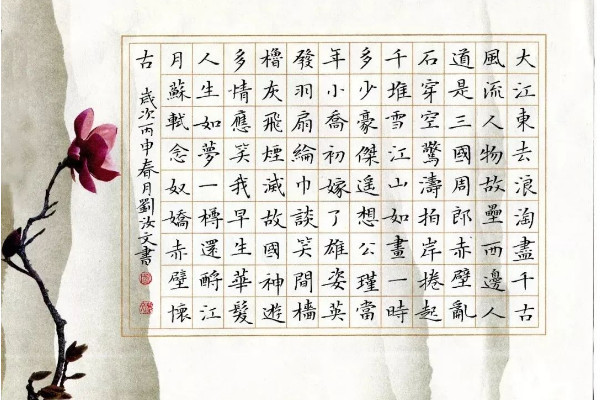 大江東去浪淘盡千古
風流人物故壘西邊人
道是三國周郎赤壁亂
石穿空驚濤拍岸捲起
千堆雪江山如畫一時
多少豪傑遙想公瑾當
年小喬初嫁了雄姿英
發羽扇綸巾談笑間檣
櫓灰飛煙滅故國神遊
多情應笑我早生華髮
人生如夢一樽還酹江
月蘇軾念奴嬌赤壁懷
古
歲次丙申春月劉汝文書